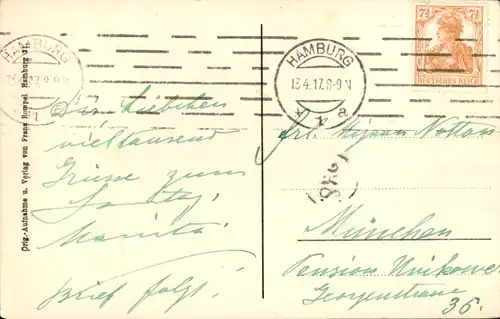 HAMBURG
13.4.17.8-9N
* 1 a
HAMBURG
13.4.17.8-9N
* 1 a
7½ 7½
DEUTSCHES REICH
Orig.-Aufnahme u. Verlag von Franz Rompel, Hamburg
vieltausend
Grüsse zum
Sonntag,
Brief folgt!
Frl.
München
Pension
Georgenstrasse
36.